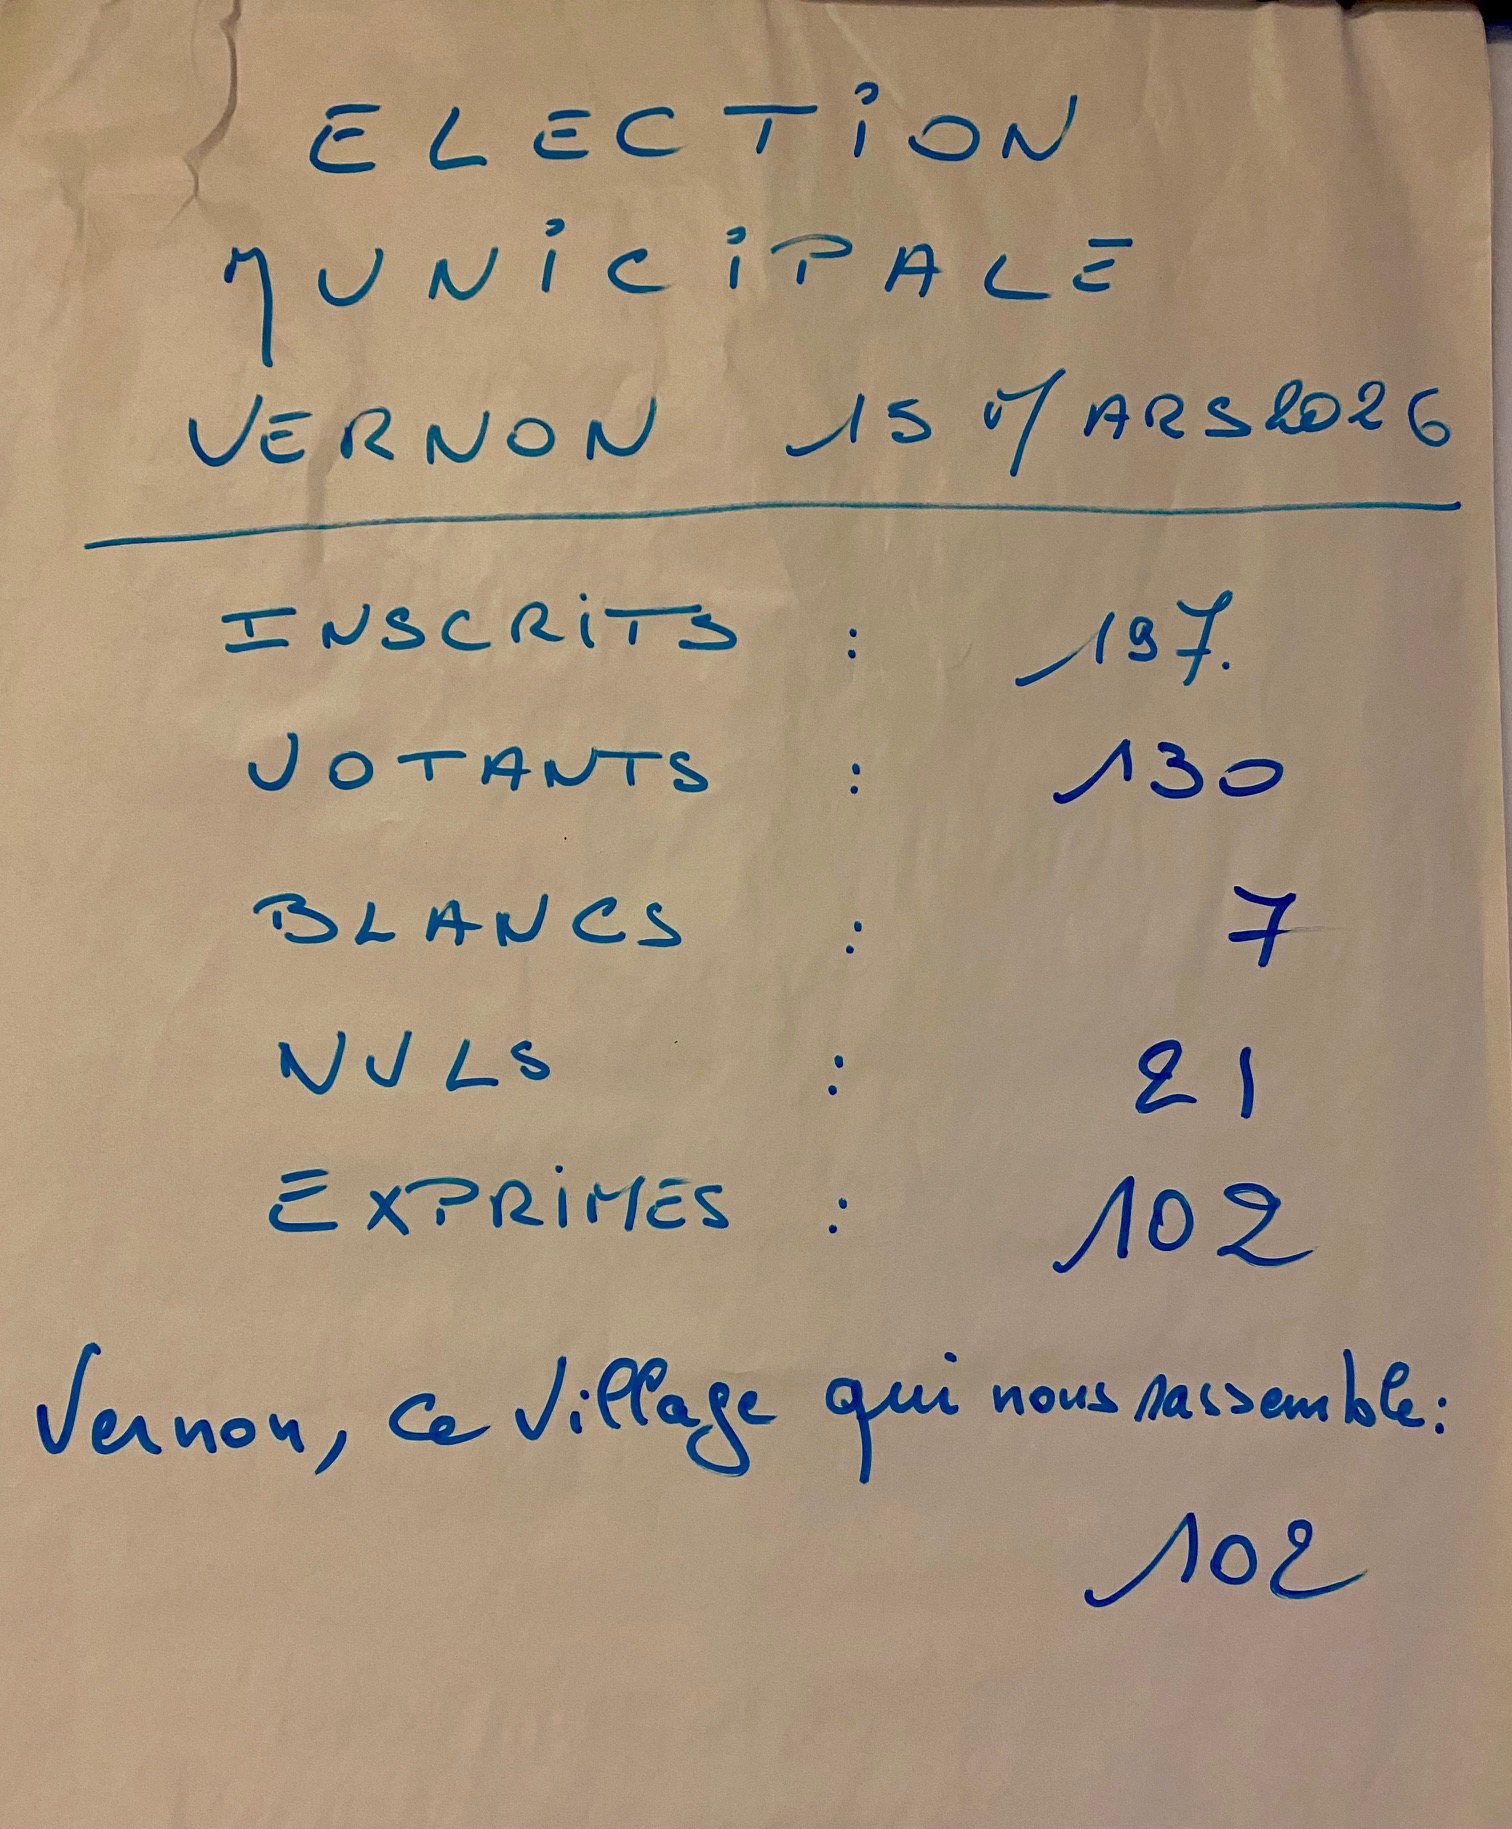 ELECTION
MUNICIPALE
VERNON 15 MARS 2026
INSCRITS : 197.
VOTANTS : 130
BLANCS : 7
NULS : 21
EXPRIMES : 102
Vernon, ce village qui nous rassemble :
102